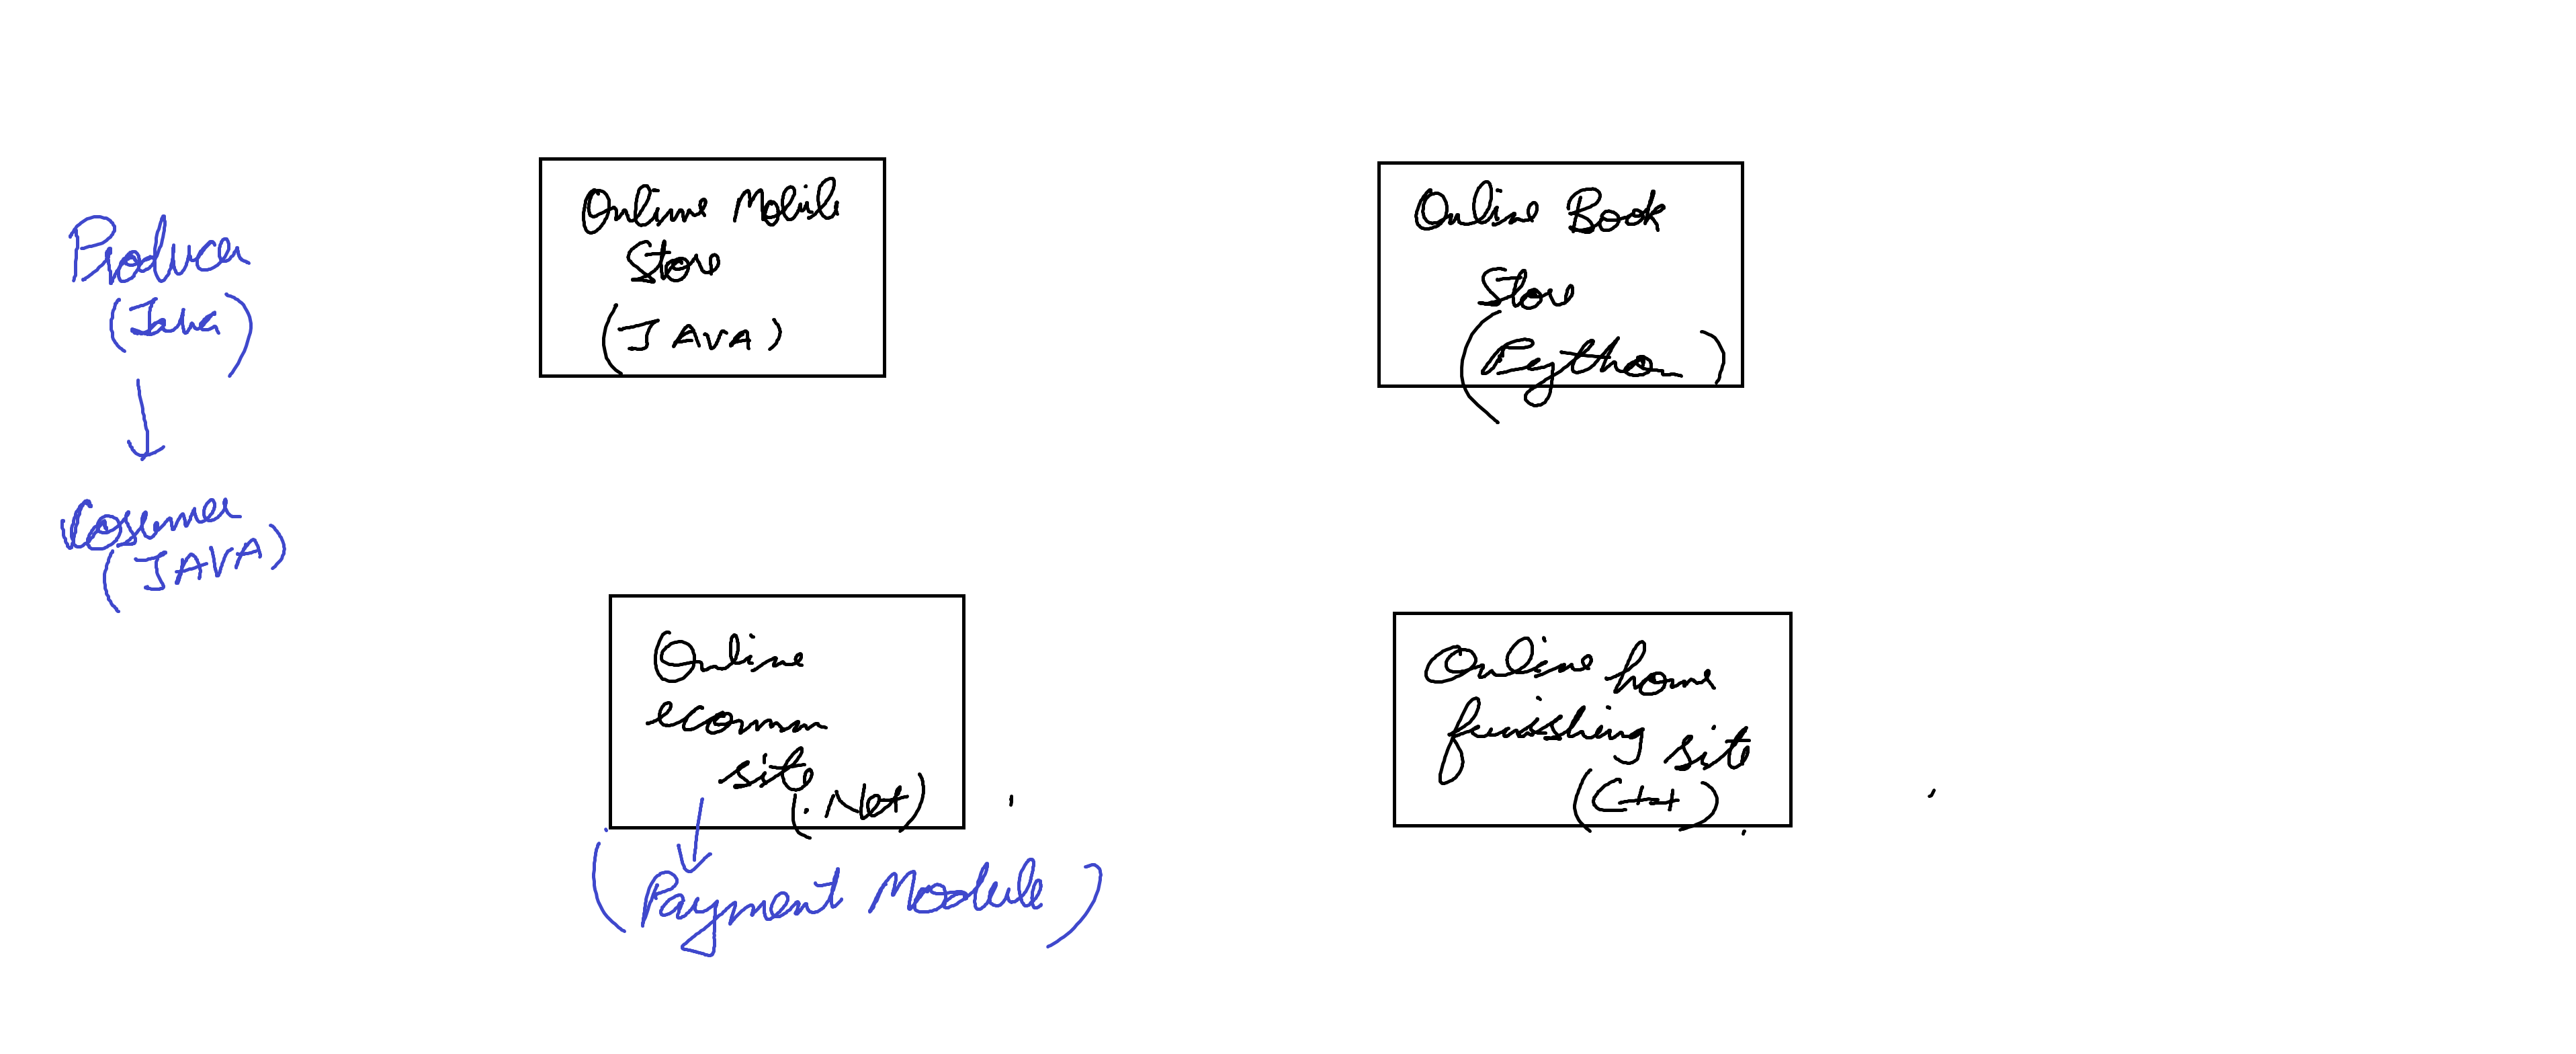 Producer
(Java)
Cosumer
(JAVA)
Online Mobile
Store
(JAVA)
Online Book
Store
(Python)
Online
ecomm
site
(.Net)
(Payment Module)
Online home
furnishing site
(C++)